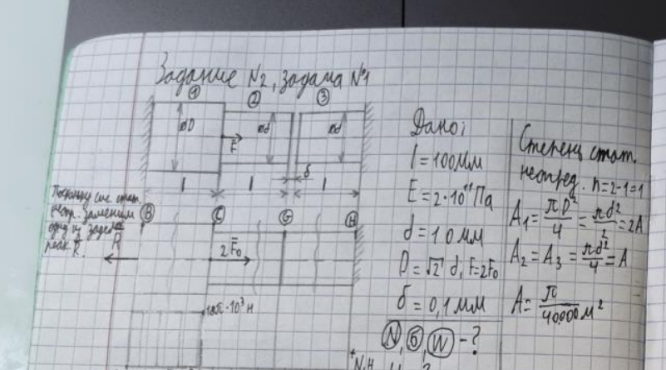 Задание №2, задача №1
① ② ③
⌀D ⌀d ⌀d
F
δ
l l l
Поскольку сис. стат.
неопр. заменим
одну из заделок
реак. R.
B C G H
R
2F₀
18π·10³ н
N, H
Дано:
l = 100мм
E = 2·10¹¹ Па
d = 10мм
D = √2 d, F=2F₀
δ = 0,1мм
N, б, W - ?
Степень стат.
неопред. n=2-1=1
A₁ = πD²/4 = πd²/2 = 2A
A₂ = A₃ = πd²/4 = A
A = π/40000 м²